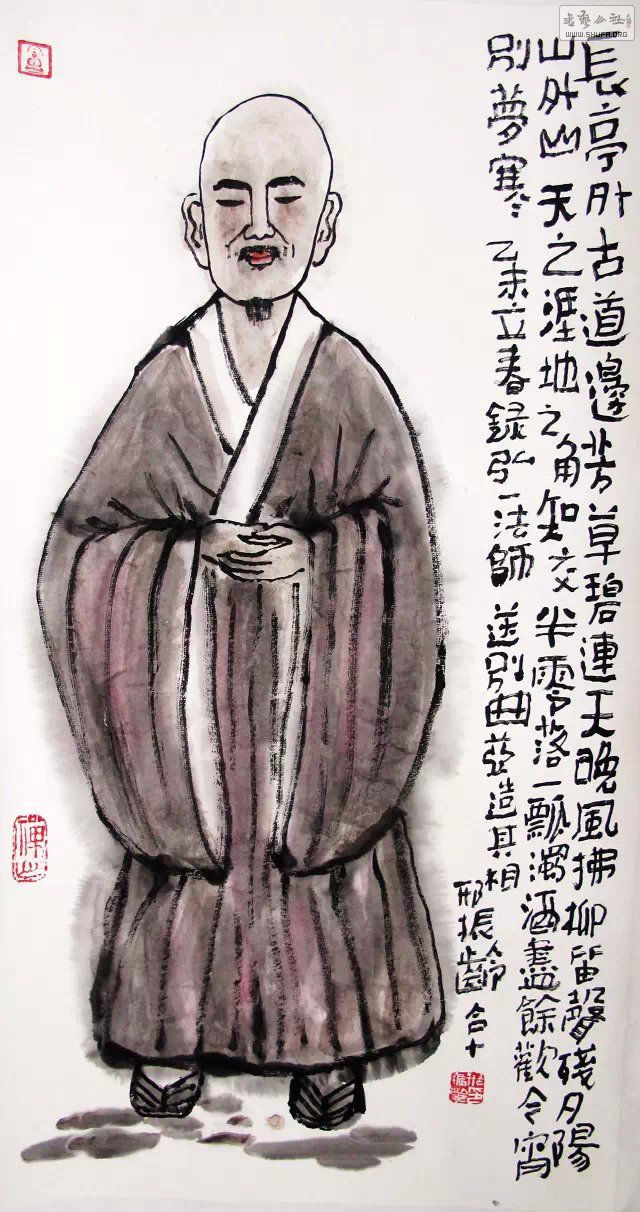 書藝公社
WWW.SHUFA.ORG
長亭外古道邊芳草碧連天晚風拂柳笛聲殘夕陽
山外山天之涯地之角知交半零落一瓢濁酒盡餘歡今宵
別夢寒 乙未立春錄弘一法師送別曲並造其相
邢振齡合十